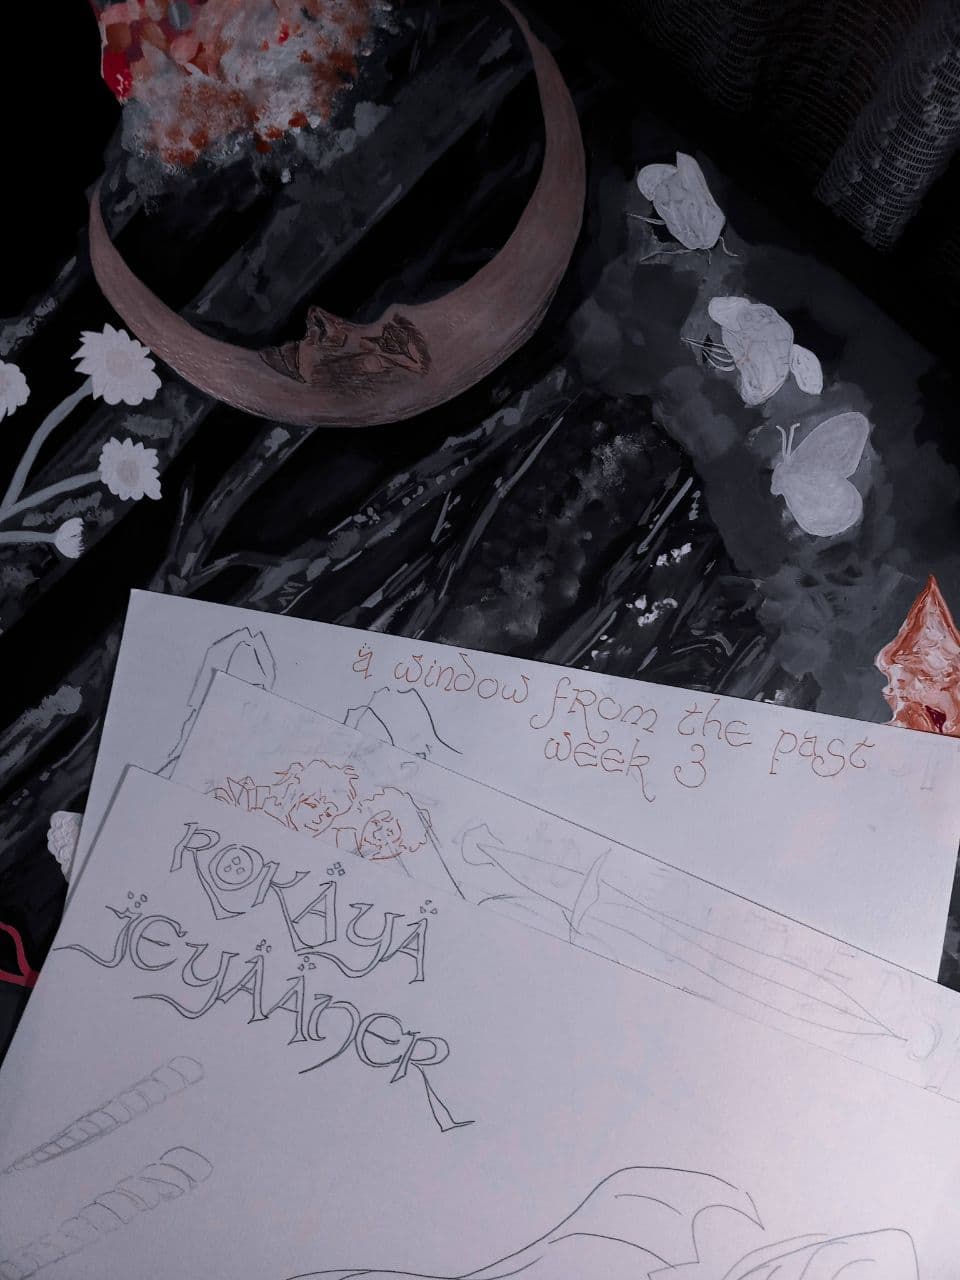 ä window from the past
week 3
ROKÄYÄ
JEYÄÄNER